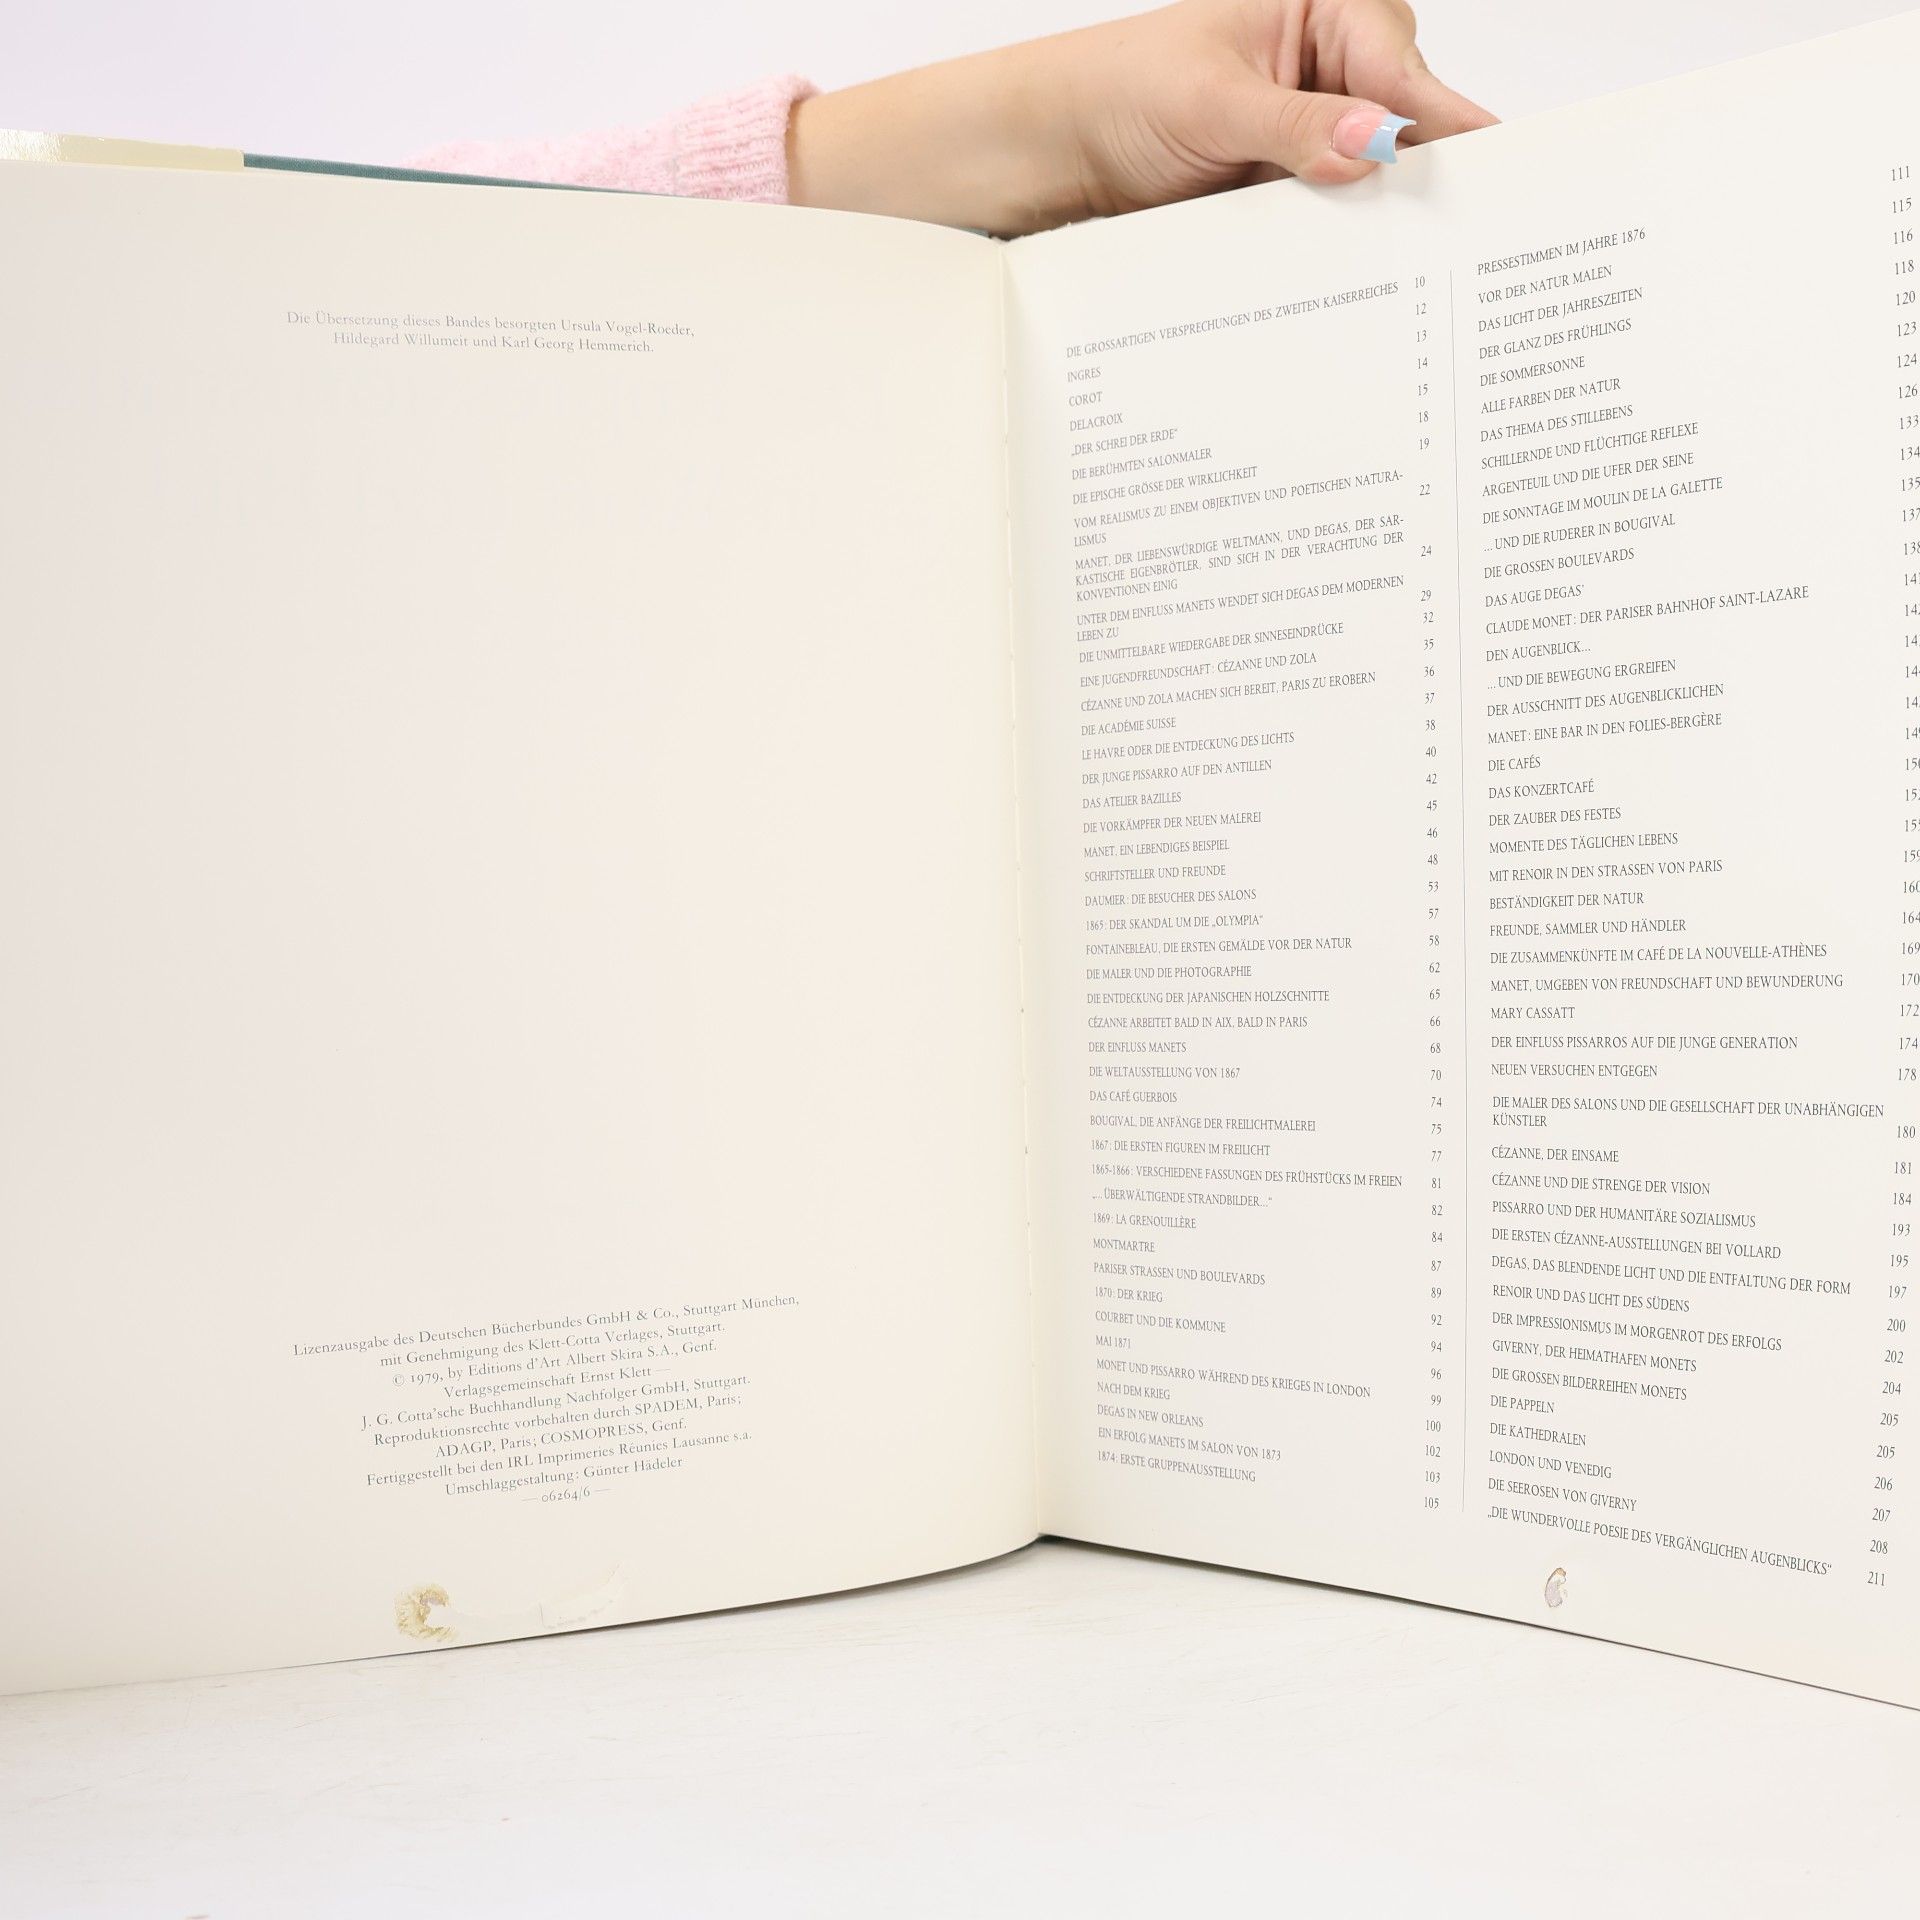 Die Übersetzung dieses Bandes besorgten Ursula Vogel-Roeder,
Hildegard Willumeit und Karl Georg Hemmerich.
Lizenzausgabe des Deutschen Bücherbundes GmbH & Co., Stuttgart München,
mit Genehmigung des Klett-Cotta Verlages, Stuttgart.
© 1979, by Editions d'Art Albert Skira S.A., Genf.
Verlagsgemeinschaft Ernst Klett —
J. G. Cotta'sche Buchhandlung Nachfolger GmbH, Stuttgart.
Reproduktionsrechte vorbehalten durch SPADEM, Paris;
ADAGP, Paris; COSMOPRESS, Genf.
Fertiggestellt bei den IRL Imprimeries Réunies Lausanne s.a.
Umschlaggestaltung: Günter Hädeler
— 06264/6 —
DIE GROSSARTIGEN VERSPRECHUNGEN DES ZWEITEN KAISERREICHES 10
INGRES 12
COROT 13
DELACROIX 14
„DER SCHREI DER ERDE“ 15
DIE BERÜHMTEN SALONMALER 18
DIE EPISCHE GRÖSSE DER WIRKLICHKEIT 19
VOM REALISMUS ZU EINEM OBJEKTIVEN UND POETISCHEN NATURA-
LISMUS 22
MANET, DER LIEBENSWÜRDIGE WELTMANN, UND DEGAS, DER SAR-
KASTISCHE EIGENBRÖTLER, SIND SICH IN DER VERACHTUNG DER
KONVENTIONEN EINIG 24
UNTER DEM EINFLUSS MANETS WENDET SICH DEGAS DEM MODERNEN
LEBEN ZU 29
DIE UNMITTELBARE WIEDERGABE DER SINNESEINDRÜCKE 32
EINE JUGENDFREUNDSCHAFT: CÉZANNE UND ZOLA 35
CÉZANNE UND ZOLA MACHEN SICH BEREIT, PARIS ZU EROBERN 36
DIE ACADÉMIE SUISSE 37
LE HAVRE ODER DIE ENTDECKUNG DES LICHTS 38
DER JUNGE PISSARRO AUF DEN ANTILLEN 40
DAS ATELIER BAZILLES 42
DIE VORKÄMPFER DER NEUEN MALEREI 45
MANET, EIN LEBENDIGES BEISPIEL 46
SCHRIFTSTELLER UND FREUNDE 48
DAUMIER: DIE BESUCHER DES SALONS 53
1865: DER SKANDAL UM DIE „OLYMPIA“ 57
FONTAINEBLEAU, DIE ERSTEN GEMÄLDE VOR DER NATUR 58
DIE MALER UND DIE PHOTOGRAPHIE 62
DIE ENTDECKUNG DER JAPANISCHEN HOLZSCHNITTE 65
CÉZANNE ARBEITET BALD IN AIX, BALD IN PARIS 66
DER EINFLUSS MANETS 68
DIE WELTAUSSTELLUNG VON 1867 70
DAS CAFÉ GUERBOIS 74
BOUGIVAL, DIE ANFÄNGE DER FREILICHTMALEREI 75
1867: DIE ERSTEN FIGUREN IM FREILICHT 77
1865-1866: VERSCHIEDENE FASSUNGEN DES FRÜHSTÜCKS IM FREIEN 81
„... ÜBERWÄLTIGENDE STRANDBILDER...“ 82
1869: LA GRENOUILLÈRE 84
MONTMARTRE 87
PARISER STRASSEN UND BOULEVARDS 89
1870: DER KRIEG 92
COURBET UND DIE KOMMUNE 94
MAI 1871 96
MONET UND PISSARRO WÄHREND DES KRIEGES IN LONDON 99
NACH DEM KRIEG 100
DEGAS IN NEW ORLEANS 102
EIN ERFOLG MANETS IM SALON VON 1873 103
1874: ERSTE GRUPPENAUSSTELLUNG 105
PRESSESTIMMEN IM JAHRE 1876 111
VOR DER NATUR MALEN 115
DAS LICHT DER JAHRESZEITEN 116
DER GLANZ DES FRÜHLINGS 118
DIE SOMMERSONNE 120
ALLE FARBEN DER NATUR 123
DAS THEMA DES STILLEBENS 124
SCHILLERNDE UND FLÜCHTIGE REFLEXE 126
ARGENTEUIL UND DIE UFER DER SEINE 133
DIE SONNTAGE IM MOULIN DE LA GALETTE 134
... UND DIE RUDERER IN BOUGIVAL 135
DIE GROSSEN BOULEVARDS 137
DAS AUGE DEGAS' 138
CLAUDE MONET: DER PARISER BAHNHOF SAINT-LAZARE
DEN AUGENBLICK...
... UND DIE BEWEGUNG ERGREIFEN
DER AUSSCHNITT DES AUGENBLICKLICHEN
MANET: EINE BAR IN DEN FOLIES-BERGÈRE
DIE CAFÉS
DAS KONZERTCAFÉ
DER ZAUBER DES FESTES
MOMENTE DES TÄGLICHEN LEBENS
MIT RENOIR IN DEN STRASSEN VON PARIS 159
BESTÄNDIGKEIT DER NATUR 160
FREUNDE, SAMMLER UND HÄNDLER 164
DIE ZUSAMMENKÜNFTE IM CAFÉ DE LA NOUVELLE-ATHÈNES 169
MANET, UMGEBEN VON FREUNDSCHAFT UND BEWUNDERUNG 170
MARY CASSATT 172
DER EINFLUSS PISSARROS AUF DIE JUNGE GENERATION 174
NEUEN VERSUCHEN ENTGEGEN 178
DIE MALER DES SALONS UND DIE GESELLSCHAFT DER UNABHÄNGIGEN
KÜNSTLER 180
CÉZANNE, DER EINSAME 181
CÉZANNE UND DIE STRENGE DER VISION 184
PISSARRO UND DER HUMANITÄRE SOZIALISMUS 193
DIE ERSTEN CÉZANNE-AUSSTELLUNGEN BEI VOLLARD 195
DEGAS, DAS BLENDENDE LICHT UND DIE ENTFALTUNG DER FORM 197
RENOIR UND DAS LICHT DES SÜDENS 200
DER IMPRESSIONISMUS IM MORGENROT DES ERFOLGS 202
GIVERNY, DER HEIMATHAFEN MONETS 204
DIE GROSSEN BILDERREIHEN MONETS 205
DIE PAPPELN 205
DIE KATHEDRALEN 206
LONDON UND VENEDIG 207
DIE SEEROSEN VON GIVERNY 208
„DIE WUNDERVOLLE POESIE DES VERGÄNGLICHEN AUGENBLICKS“ 211